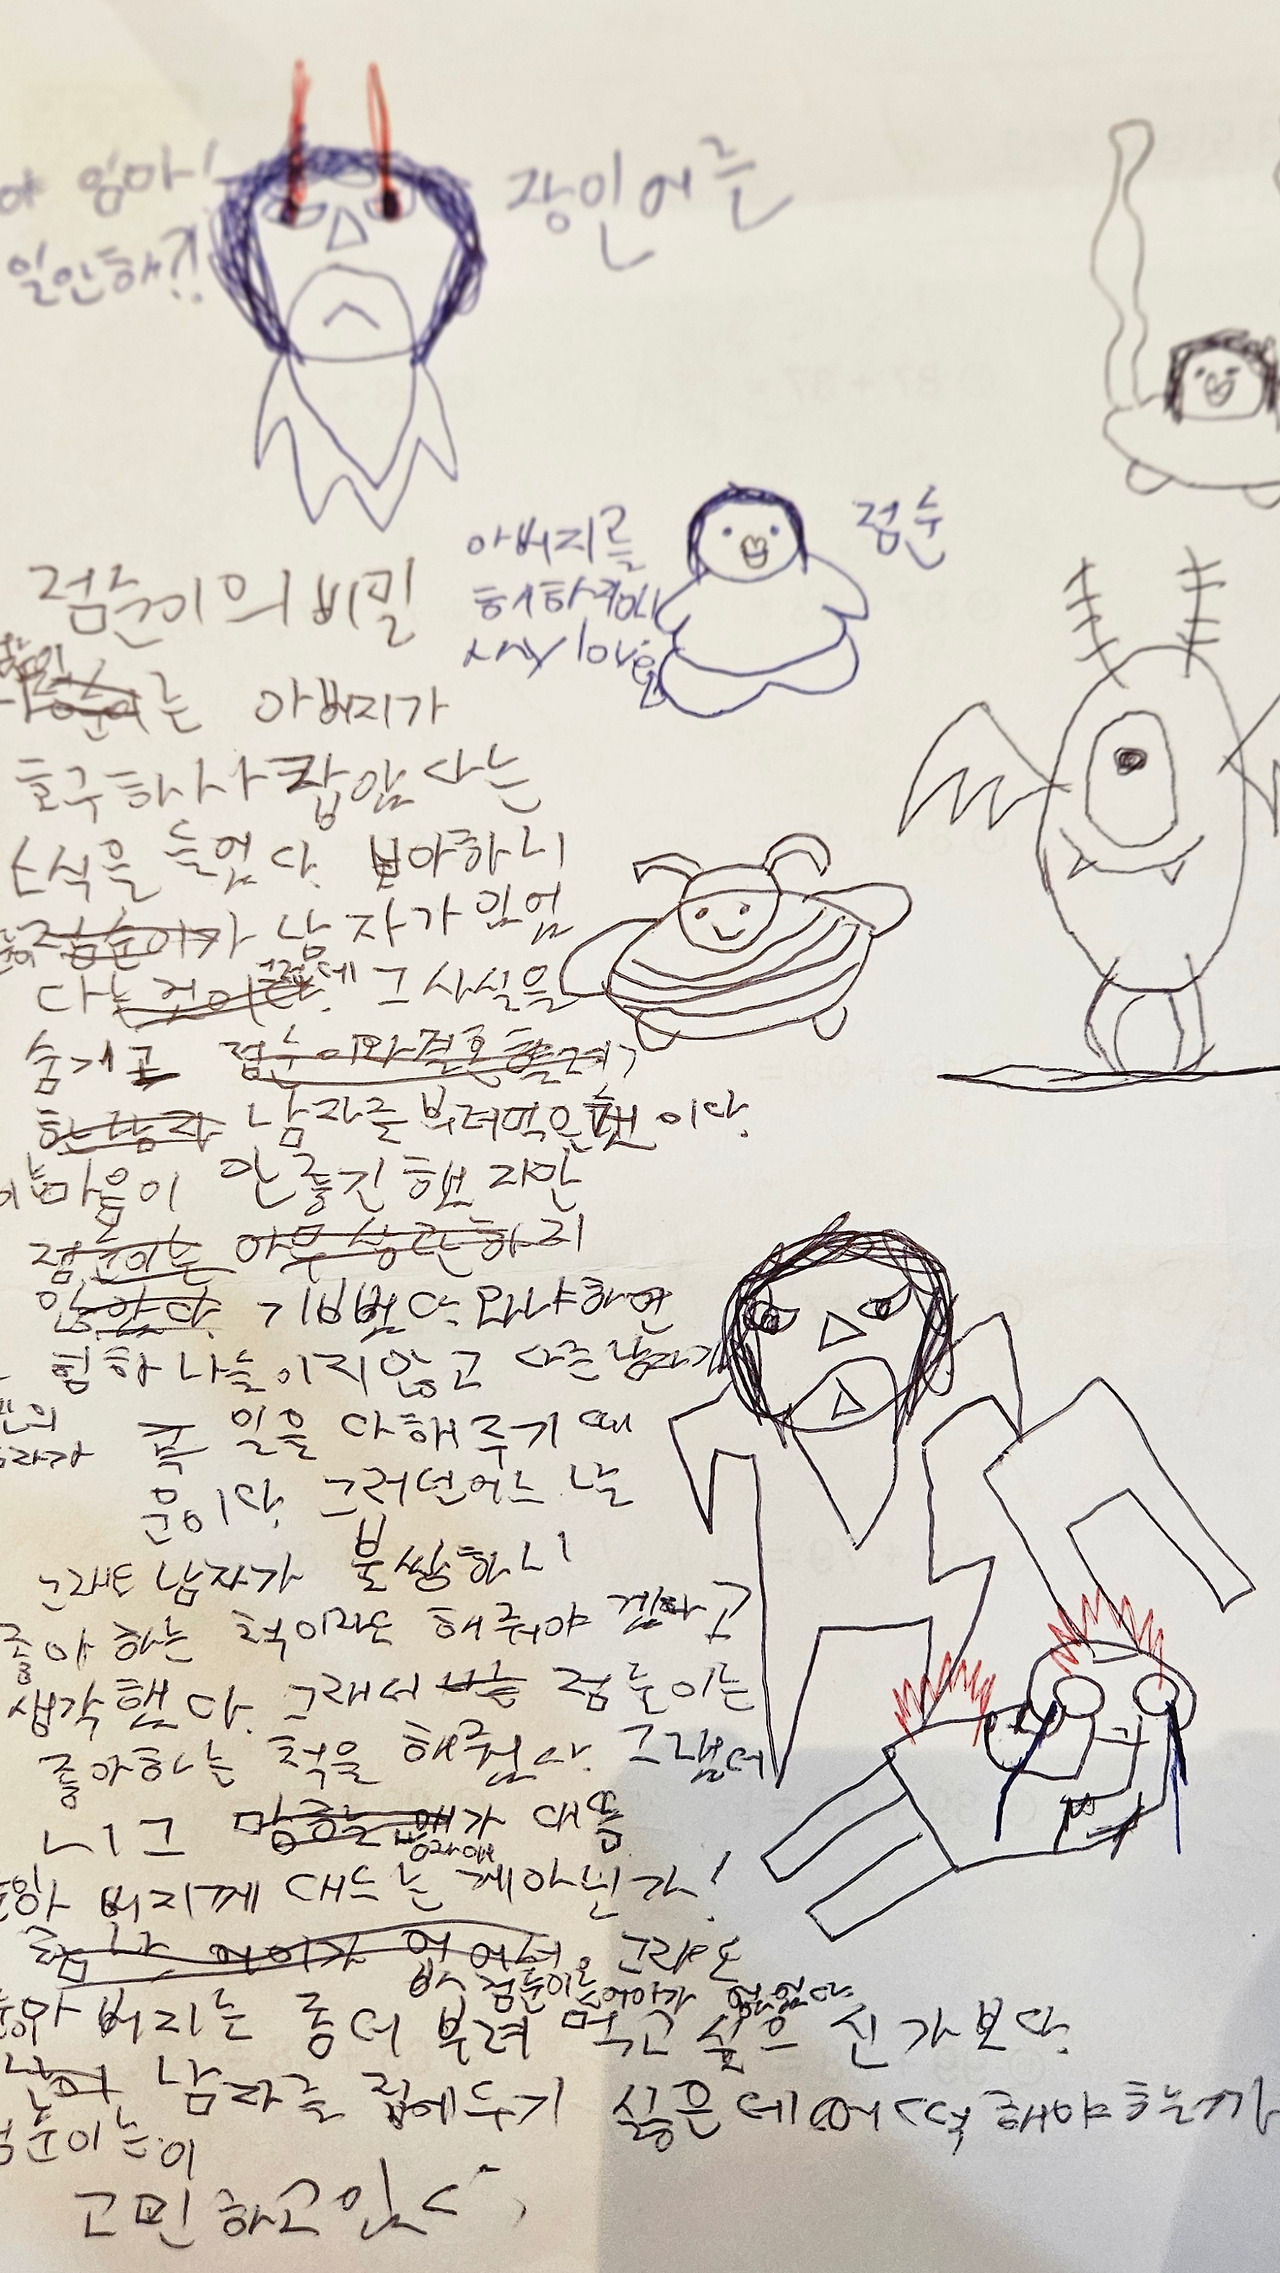 야 엄마! 장인어른
일안해?!
아버지를 점순
해하거니
say love
점순이의 비밀
는 아버지가
호구하나 잡았다는
소식을 들었다. 보아하니
점순이가 남자가 있었
다는 것이 그런데 그 사실을
숨기고 점순이와 결혼하려
한 남자 남자를 부려먹은 이다.
마음이 안 좋긴 했지만
점순이는 아무 상관하지
않았다. 기뻤다. 왜냐하면
힘하나 들이지 않고 다른 남자가
일을 다 해주기 때
문이다. 그러던 어느 날
그래도 남자가 불쌍하니
좋아하는 척이라도 해줘야 겠다고
생각했다. 그래서 나는 점순이는
좋아하는 척을 해줬다. 그랬더
니 그 남자애가 대뜸
아버지께 대드는 게 아닌가!
어이가 없어서 그래도
점순이는 어이가 없었다
아버지는 좀 더 부려 먹고 싶으신가보다.
남자를 집에 두기 싫은데 어떡해야 하는가
점순이는 이
고민하고 있다.